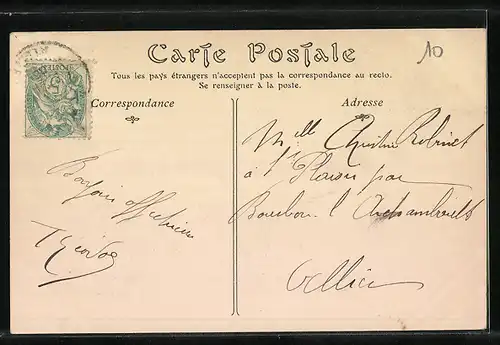 10
Carte Postale
Tous les pays étrangers n'acceptent pas la correspondance au recto.
Se renseigner à la poste.
Correspondance
Adresse
Melle Robinet
à St Plaisir par
Bourbon l'Archambault
Allier
Bonjour affectueux